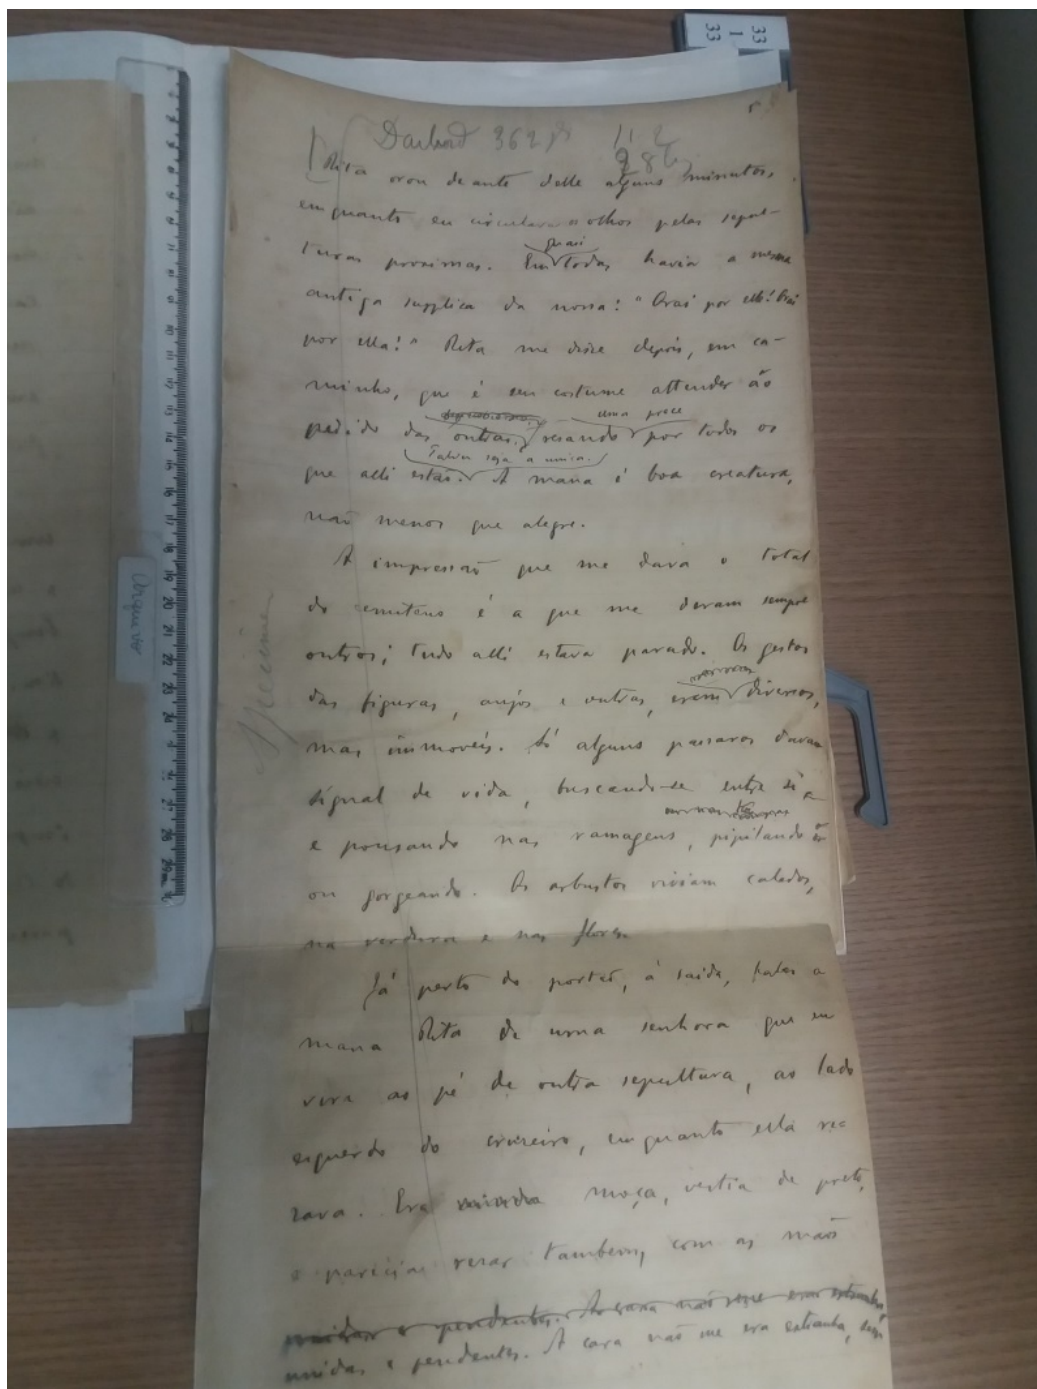 33
1
33
5
362
Rita orou deante delle alguns minutos,
emquanto eu circulava os olhos pelas sepul-
turas proximas. Em quasi todas havia a mesma
antiga supplica da nossa: "Orai por elle! Orai
por ella!" Rita me disse depois, em ca-
minho, que é seu costume attender ao
pedido das outras, resando uma prece por todos os
que alli estão. Talvez seja a unica. A mana é boa creatura,
não menos que alegre.
A impressão que me dava o total
do cemiterio é a que me deram sempre
outros; tudo alli estava parado. Os gestos
das figuras, anjos e outras, eram diversos,
mas immoveis. Só alguns passaros davam
signal de vida, buscando-se entre si
e pousando nas ramagens, pipilando
ou gorgeando. Os arbustos viviam calados,
na verdura e nas flores.
Já perto do portão, á saida, falei a
mana Rita de uma senhora que eu
vira ao pé de outra sepultura, ao lado
esquerdo do cruzeiro, emquanto ella re-
zava. Era moça, vestia de preto,
e parecia rezar tambem, com as mãos
unidas e pendentes. A cara não me era extranha, sem
Specimen
Arquivo